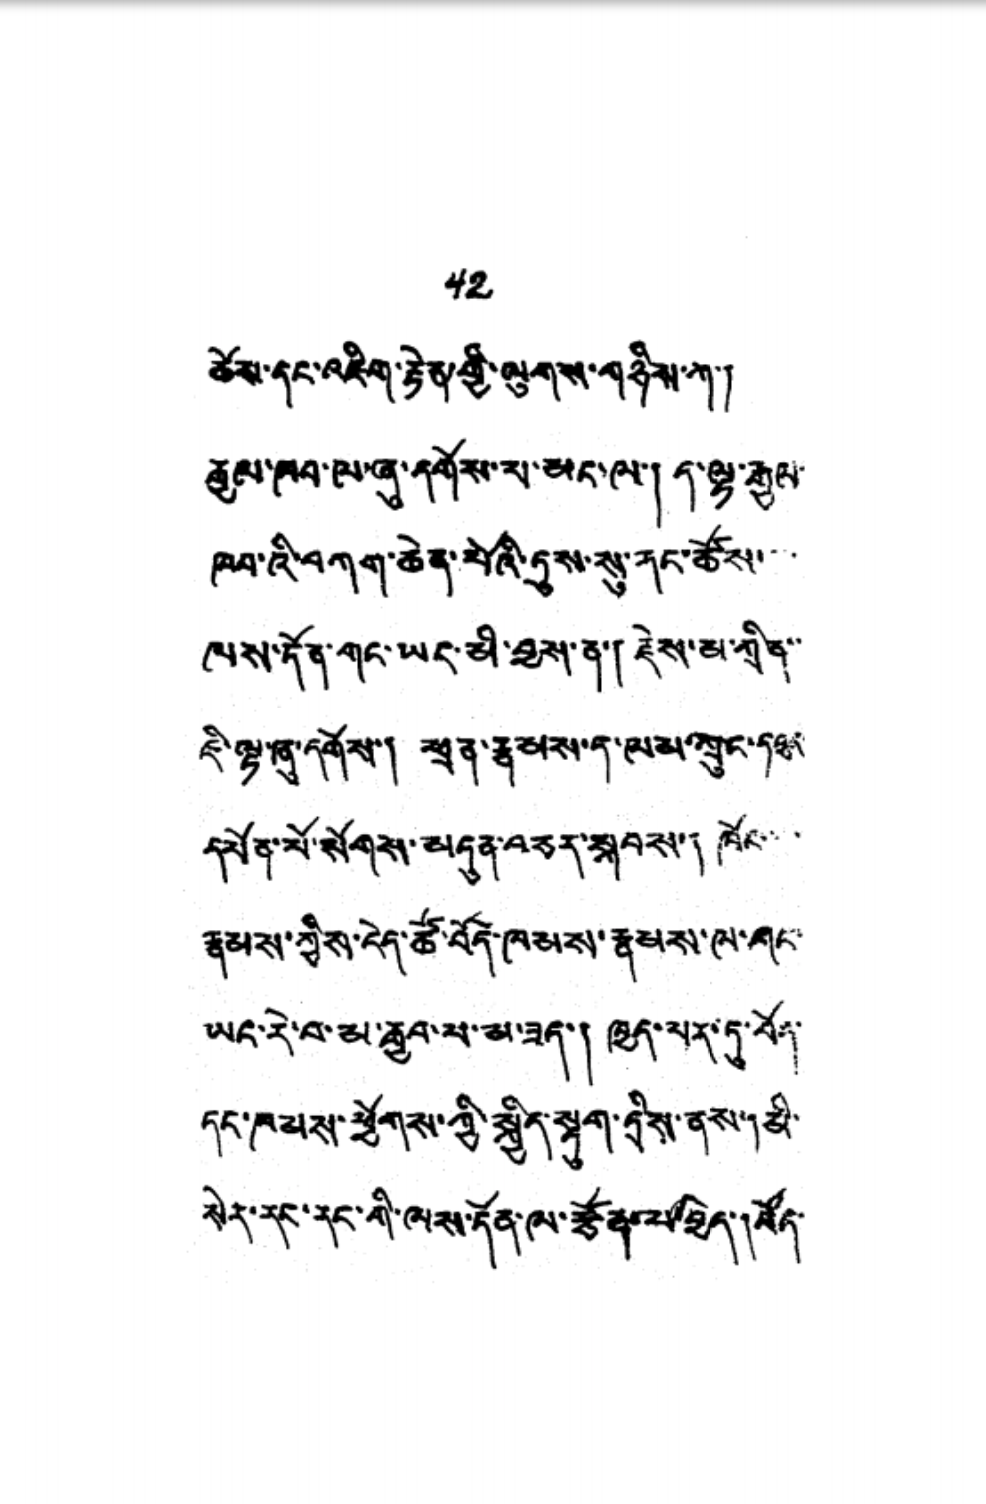 42
ཆོས་དང་འཇིག་རྟེན་གྱི་ལུགས་གཉིས་ཀ།
རྒྱལ་ཁབ་ལ་ཞུ་དགོས་པ་མང་ལ། ད་ལྟ་རྒྱལ་
ཁབ་འི་བཀག་ཆེན་པོའི་དུས་སུ་རང་ཚོས་
ལས་དོན་གང་ཡང་མི་བྱས་ན། རྗེས་མ་ཀྲིན་
ཇི་ལྟ་ཞུ་དགོས། ཕྲན་རྣམས་ད་ལམ་ཀྲུང་དབྱང
དཔོན་པོ་སོགས་མདུན་བཅར་སྐབས། ཁོང་
རྣམས་ཀྱིས་ངེད་ཚོ་བོད་ཁམས་རྣམས་ལ་ཤང་
ཡང་རེ་བ་མ་རྒྱབ་པ་མ་ཟད། ཁྱད་པར་དུ་བོད་
དང་ཁམས་ཕྱོགས་ཀྱི་སྐྱིད་སྡུག་དྲིས་ནས། མི་
སེར་རང་རང་གི་ལས་དོན་ལ་རྩོན་པ་བྱེད། བོད་